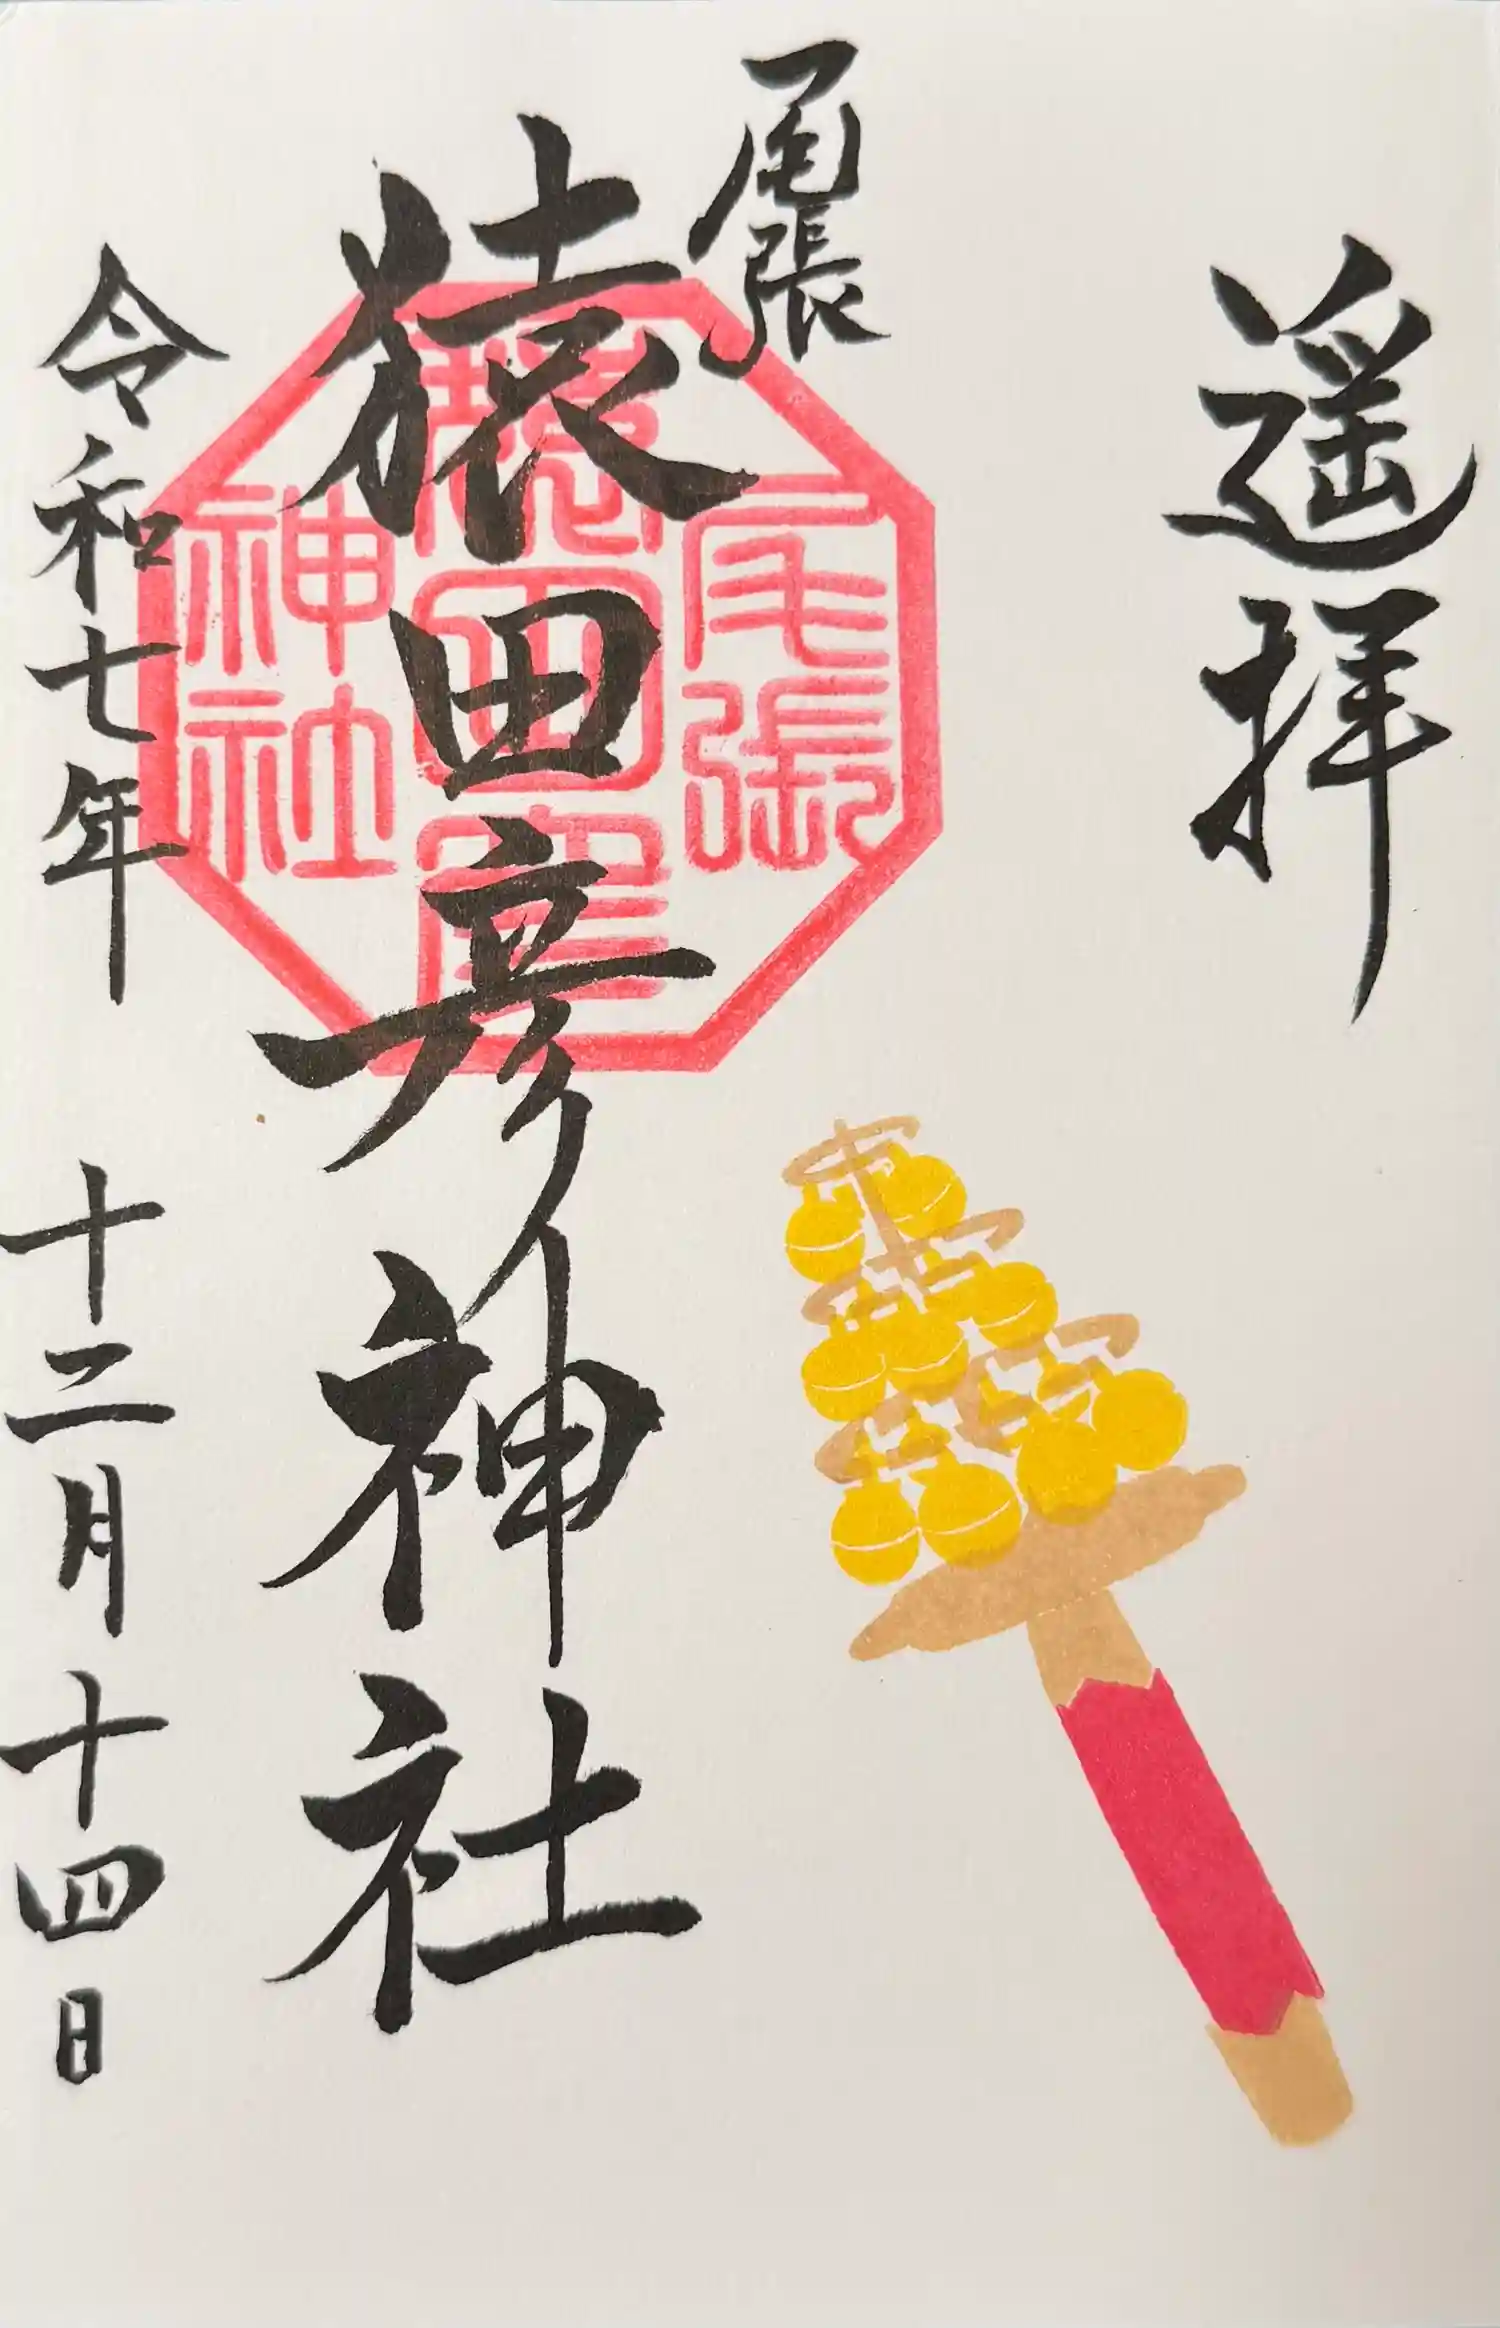 遥拝
尾張
猿田彦神社
尾張
猿田彦
神社
令和七年 十二月十四日